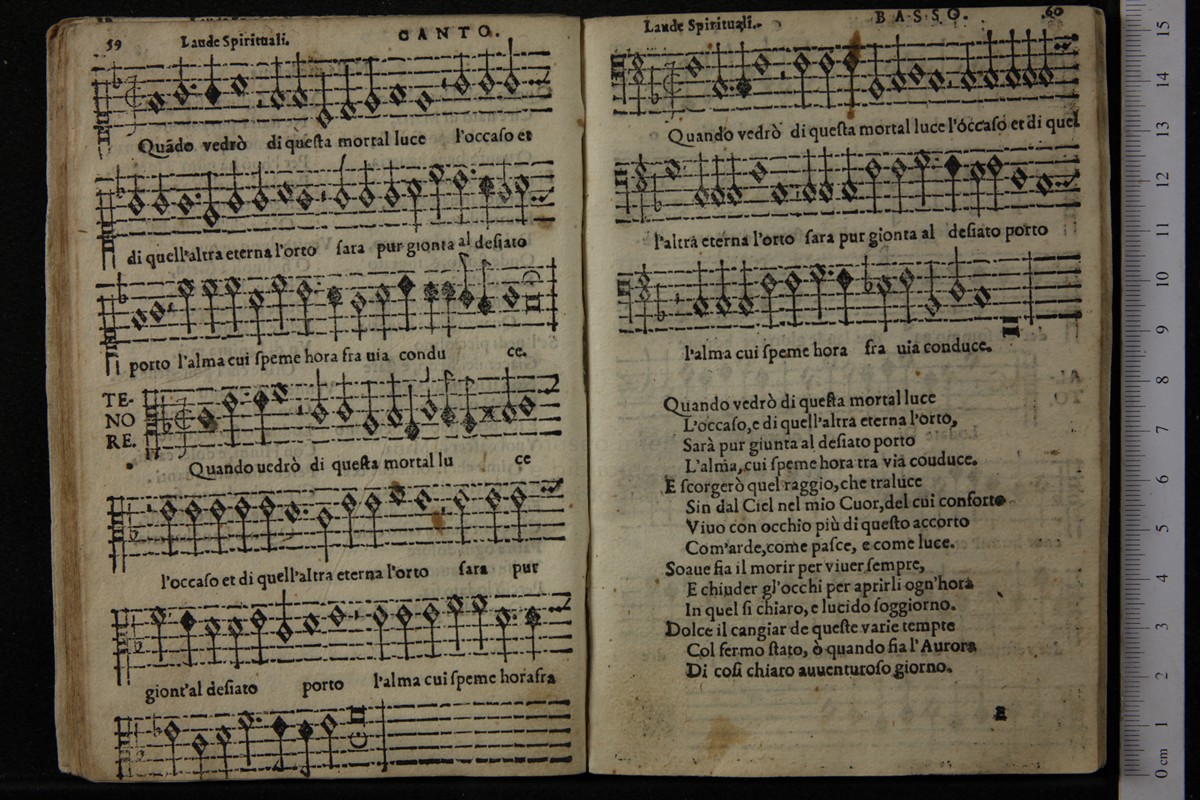 59
Laude Spirituali.
CANTO.
Quādo vedrò di queſta mortal luce l'occaſo et
di quell'altra eterna l'orto ſara pur gionta al deſiato
porto l'alma cui ſpeme hora fra uia condu ce.
TE-
NO
RE.
Quando uedrò di queſta mortal lu ce
l'occaſo et di quell'altra eterna l'orto ſara pur
giont'al deſiato porto l'alma cui ſpeme horafra
Laude Spirituali.
BASSO.
60
Quando vedrò di queſta mortal luce l'óccaſo et di quel
l'altra eterna l'orto ſara pur gionta al deſiato porto
l'alma cui ſpeme hora fra uia conduce.
Quando vedrò di queſta mortal luce
L'occaſo,e di quell'altra eterna l'orto,
Sarà pur giunta al deſiato porto
L'alma,cui ſpeme hora tra via couduce.
E ſcorgerò quel raggio,che traluce
Sin dal Ciel nel mio Cuor,del cui conforto
Viuo con occhio più di queſto accorto
Com'arde,come paſce, e come luce.
Soaue fia il morir per viuer ſempre,
E chiuder gl'occhi per aprirli ogn'hora
In quel ſi chiaro,e lucido ſoggiorno.
Dolce il cangiar de queſte varie tempte
Col fermo ſtato, ò quando fia l'Aurora
Di coſi chiaro auuenturoſo giorno.
E